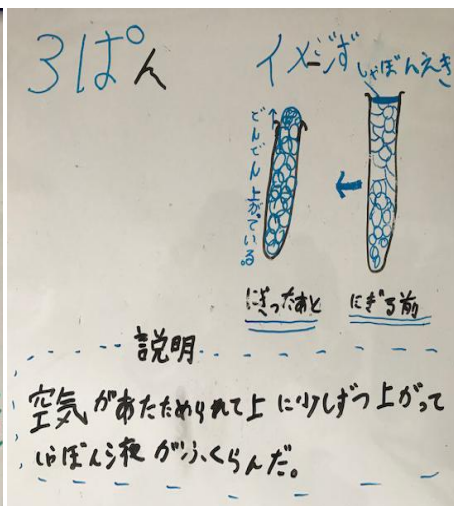 3ぱん
イメージず
しゃぼんえき
どんどん上がっている。
にぎったあと
にぎる前
説明
空気があたためられて上に少しずつ上がって
しゃぼん液がふくらんだ。